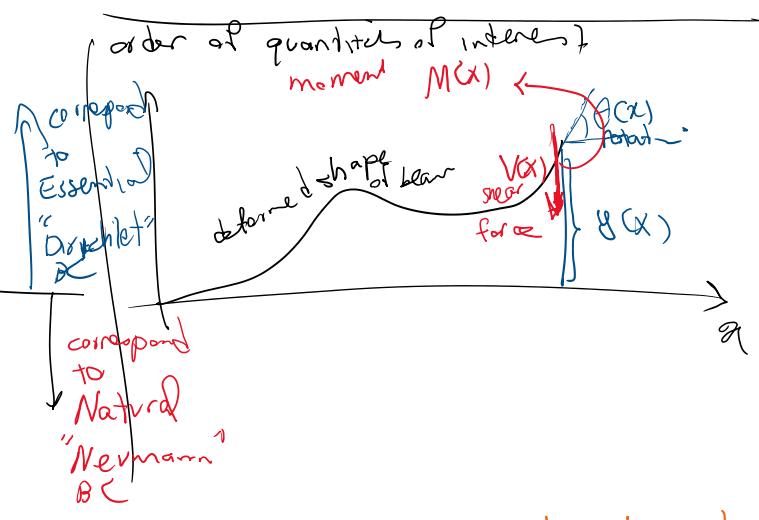 order of quantites of interest
moment M(x)
θ(x)
rotation
correspond
to
Essential
"Dirichlet"
BC
deformed shape
of beam
V(x)
shear
force
y(x)
x
correspond
to
Natural
"Neumann"
BC